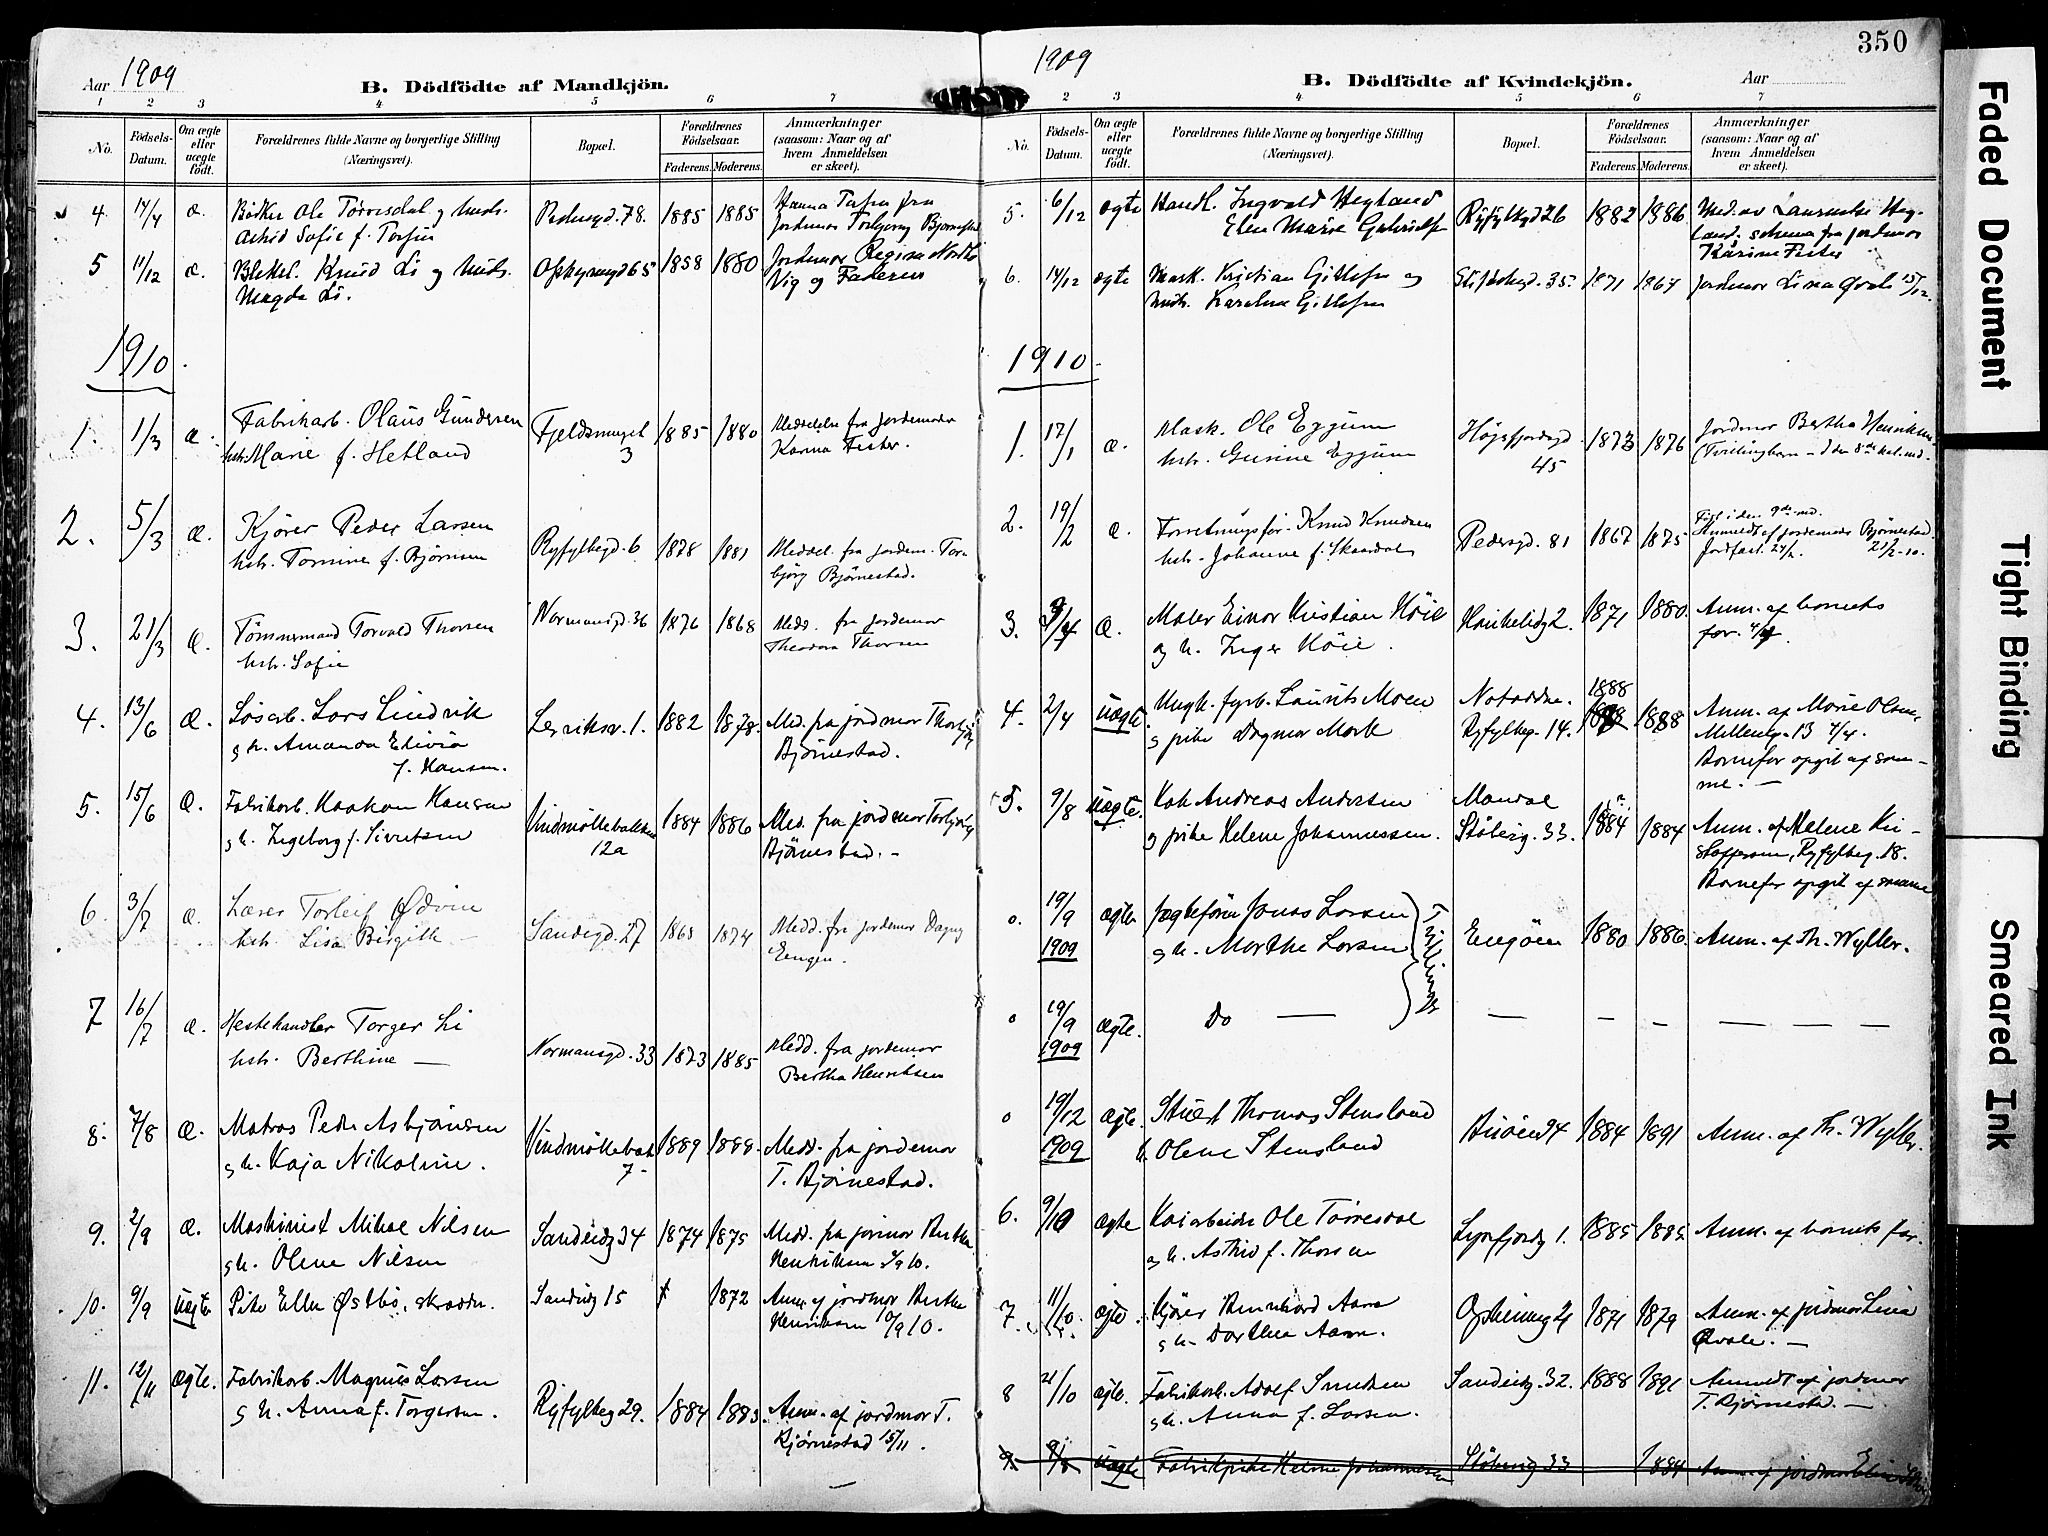 Aar 1909
B. Dödfödte af Mandkjön.
1 2 3 4 5 6 7
No. Födsels-Datum. Om ægte eller uægte födt. Forældrenes fulde Navne og borgerlige Stilling (Næringsvei). Bopæl. Forældrenes Födselsaar. Faderens. Moderens. Anmærkninger (saasom: Naar og af hvem Anmeldelsen er skeet).
4. 14/4 æ. Ole Törresdal og hust. Pedersgd. 78. 1885 1885 Hanna fra
Astrid Sofie f. Jordemor Torbjørg Bjørnestad
5 11/12 æ. Knud Li og hust. 65 1858 1880 Jordemor Regina
Magda Li. Vig og Faderen
1910.
1. 1/3 æ. Fabrikarb. Olaus Gundersen Fjeldsmuget 1885 1880 Meddelelse fra jordemoder
hstr. Marie f. Hetland 3 Karina Fister.
2. 5/3 æ. Kjörer Peder Larsen
hstr. Tomine f. Björnsen Ryfylkegd. 6 1878 1881 Meddel. fra jordem. Tor-
björg Bjørnestad.
3. 21/3 æ. Tömmermand Torvald Thorsen Normansgd. 36 1876 1868 Medd. fra jordemor
hstr. Sofie Theodora Thorsen
4. 13/6 æ. Løsarb. Lars Lindvik Lerviksv. 1. 1882 1878. Med. fra jordmor Thorbjörg
& h. Amanda Elivia Bjørnestad.
f. Hansen.
5. 15/6 æ. Fabrikarb. Haakon Hansen Vindmöllebakken 1884 1886 Med. fra jordmor Torbjörg
& h. Ingeborg f. Sivertsen 12a Bjørnestad. –
6. 3/7 æ. Lærer Torleif Ødvin
hstr. Lisa Birgitte — Sandeigd. 27 1865 1874 Medd. fra jordemor Dagny
Eengen.
7 16/7 æ. Hestehandler Torger Li
hstr. Berthine — Normansgd. 33 1873 1885 Medd. fra jordemor
Bertha Henriksen
8. 7/8 æ. Matros Peder Asbjörnsen Vindmöllebak. 1889 1888. Medd. fra jordemor
& h. Kaja Nikoline. 7– T. Bjørnestad.
9. 2/9 æ. Maskinist Mikal Nilsen Sandeidg 34 1874 1875 Medd. fra jormor Bertha
& h. Olene Nilsen Henriksen 10.
10. 9/9 uægte Pike Ellen Østbö, Sandeidg 15 † 1872 Anm. af jordmor Bertha
Henriksen 10/9 10.
11. 12/11 ægte. Fabrikarb. Magnus Larsen
& h. Anna f. Torgersen. Ryfylkeg 29. 1884 1883. Anm. af jordmor T.
Bjørnestad 15/11.
350
1909
B. Dödfödte af Kvindekjön.
Aar
2 3 4 5 6 7
No. Födsels-Datum. Om ægte eller uægte födt. Forældrenes fulde Navne og borgerlige Stilling (Næringsvei). Bopæl. Forældrenes Födselsaar. Faderens. Moderens. Anmærkninger (saasom: Naar og af hvem Anmeldelsen er skeet).
5. 6/12 ægte Handl. Ingvald Hegland Ryfylkegd 26 1882 1886 Med. av Lauritse Heg-
Elen Marie land. schema fra jordmor
Karine Fister
6. 14/12 ægte Mask. Kristian Gitlesen og 35. 1871 1864 Jordmor Lina Qvale 15/12.
hustr. Karoline Gitlesen
1910.
1. 17/1 æ. Mask. Ole Eggum Högsfjordgd. 1873 1876 Jordmor Bertha Henriksen.
hstr. Gurine Eggum 45 (Tvillingbarn – I den 8de kal.md.
2. 19/2 æ. Forretningsför. Knud Knudsen Pedersgd. 81 1867 1875 Født i den 9de md.
hstr. Johanne f. Skaardal Anmeldt af jordemoder Bjørnestad
Jordfæst. 24/2. 21/2-10.
3. 3/4 æ. Maler Einar Kristian Höie Haukelidg 2. 1871 1880. Anm. af barnets
og h. Inger Höie. far. 4/4.
4. 2/4 uægte. Ungk. fyrb. Laurits Moen Notodden. 1888
& pike Dagmar Mork Ryfylkeg. 14. 1888 Anm. af Marie Olsen,
13 4/4.
Barnefar opgit af sam-
me. —
5. 9/8 uægte. Kok Andreas Andersen Mandal 1884 1884 Anm. af Helene Kri-
& pike Helene Johannessen. Støberig. 33. stoffersen, Ryfylkeg. 18.
Barnefar opgit af samme
0. 19/9 1909 ægte Jægtefören Jonas Larsen
& h. Marthe Larsen Engöen 1880 1886. Anm. af Th. Wyller.
Tvillinger
0 19/9 1909 ægte. Do — — – – — — —
0 19/12 1909 ægte. Stuert Thomas Stensland
h. Olene Stensland Buöen 24 1884 1891 Anm. af Th. Wyller.
6. 9/10 ægte Kaiarbeider Ole Törresdal Lysefjordg 1. 1885 1885. Anm. af barnets far.
& h. Astrid f. Thorsen
7. 11/10. ægte. Kjörer Bernhard Aarre 1871 1879 Anm. af jordmor Lina
& h. Dorthea Aarre. Qvale. —
8 21/10 ægte. Fabrikarb. Adolf Sandeidg 32. 1888 1891 Anmeldt af jordmor
& h. Anna f. Larsen. T. Bjørnestad. —
9. uægte Fabrikpike Helene Johannessen Støberig 33 1884 Anm. af jordmor
Faded Document
Tight Binding
Smeared Ink